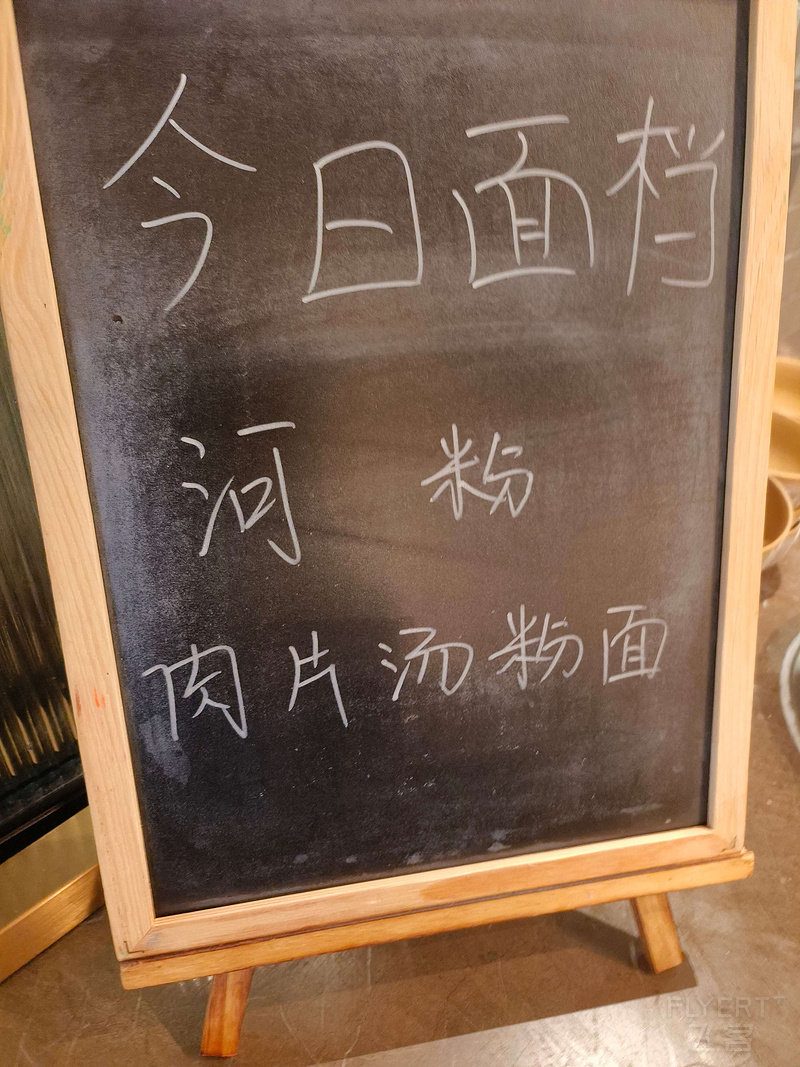 今日面档
河 粉
肉片汤粉面
FLYERT